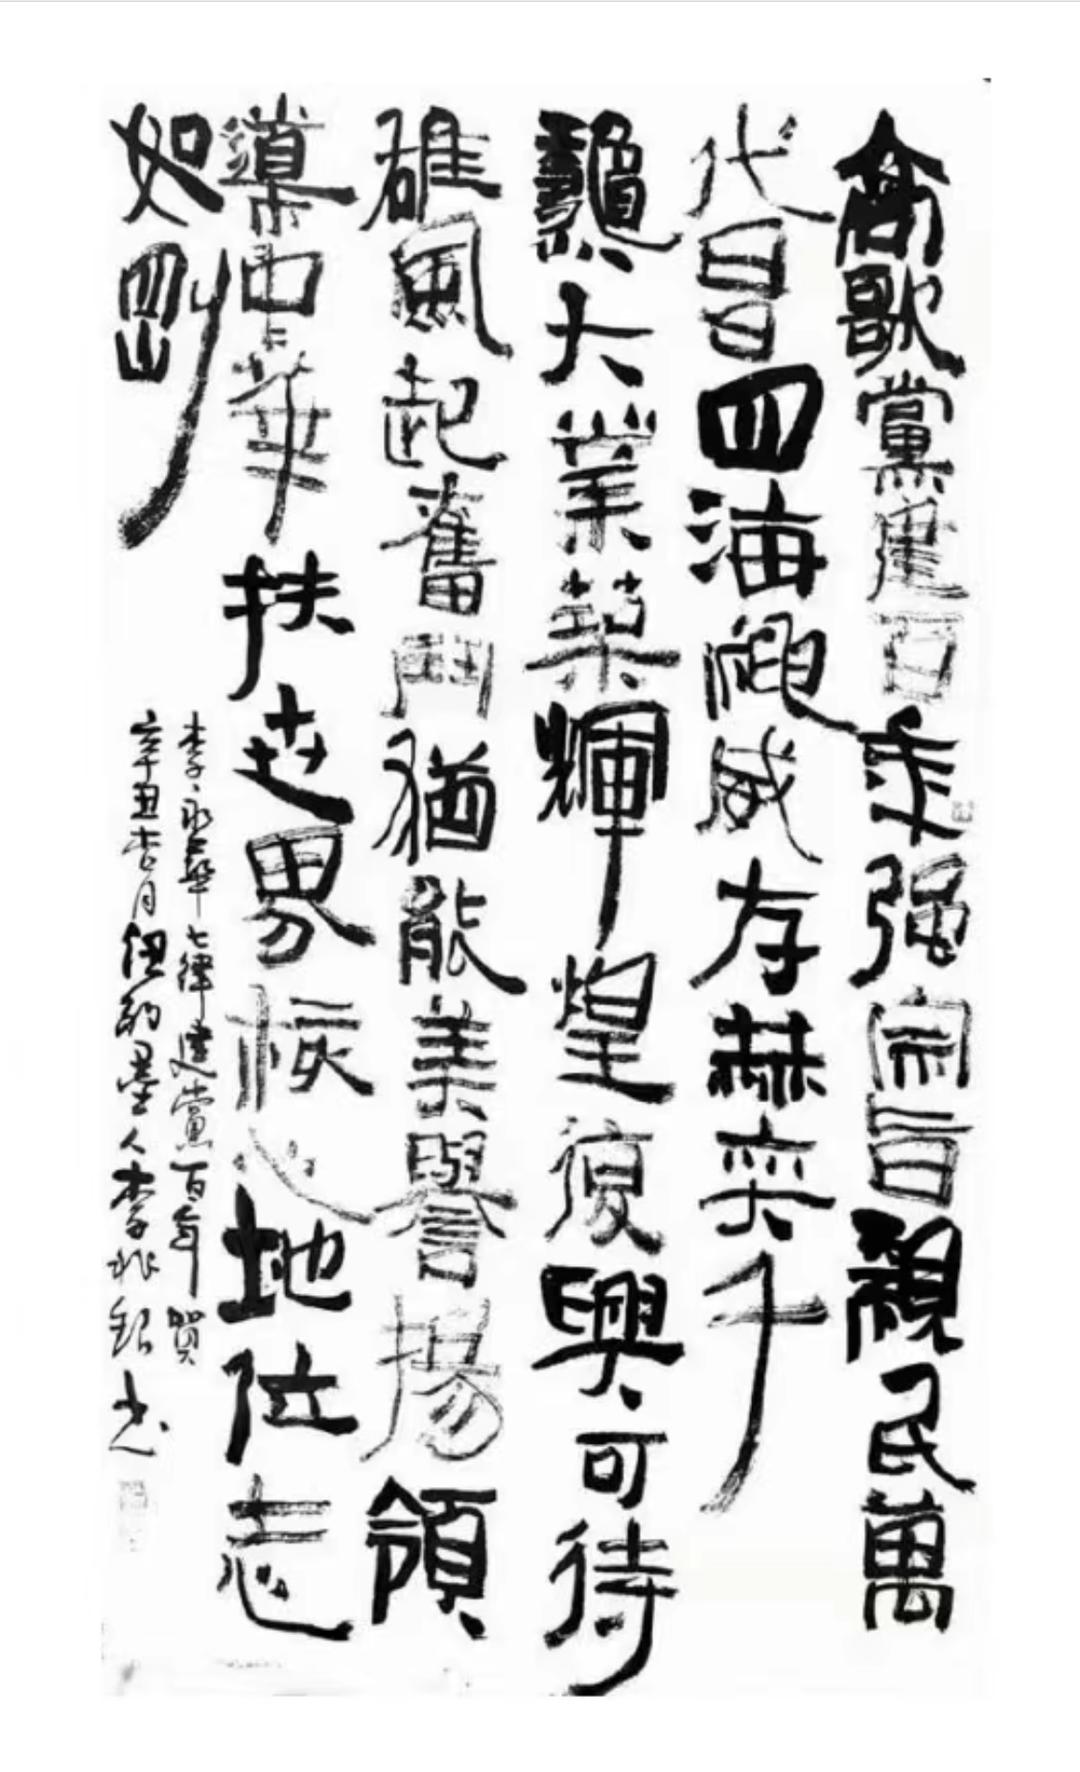 高歌黨建百年强宗旨親民萬
代昌四海颺威存赫奕千
穐大業築輝煌復興可待
雄風起奮鬥猶能美譽揚領
導中華扶世界核心地位志
如剛
李永華七律建黨百年賀
辛丑杏月伊朐墨人李兆銀書